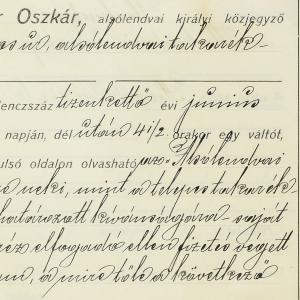 r Oszkár, alsólendvai királyi közjegyző
es úr, alsólendvai takarék-
lenczszáz tizenkettő évi június
napján, dél után 4 1/2 órakor egy váltót,
ulsó oldalon olvasható azo. Alsólendvai
neki, mint a telepes takarék-
határozatt kívánságára saját
ez elfogadó ellen fizetés végett
am, a mire tőle a következő